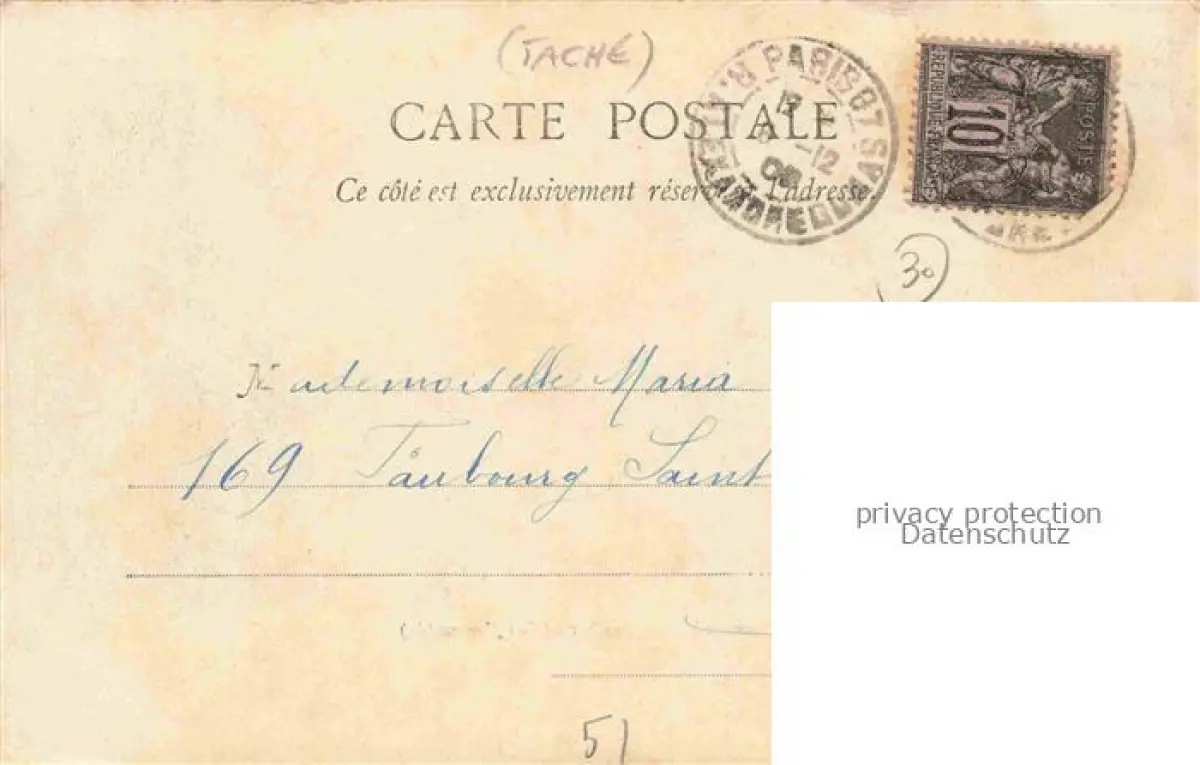 (TACHÉ)
CARTE POSTALE
Ce côté est exclusivement réservé à l'adresse.
PARIS
-12
REPUBLIQUE FRANCAISE
10
POSTES
30
Mademoiselle Maria
169 Faubourg Saint
privacy protection
Datenschutz
51